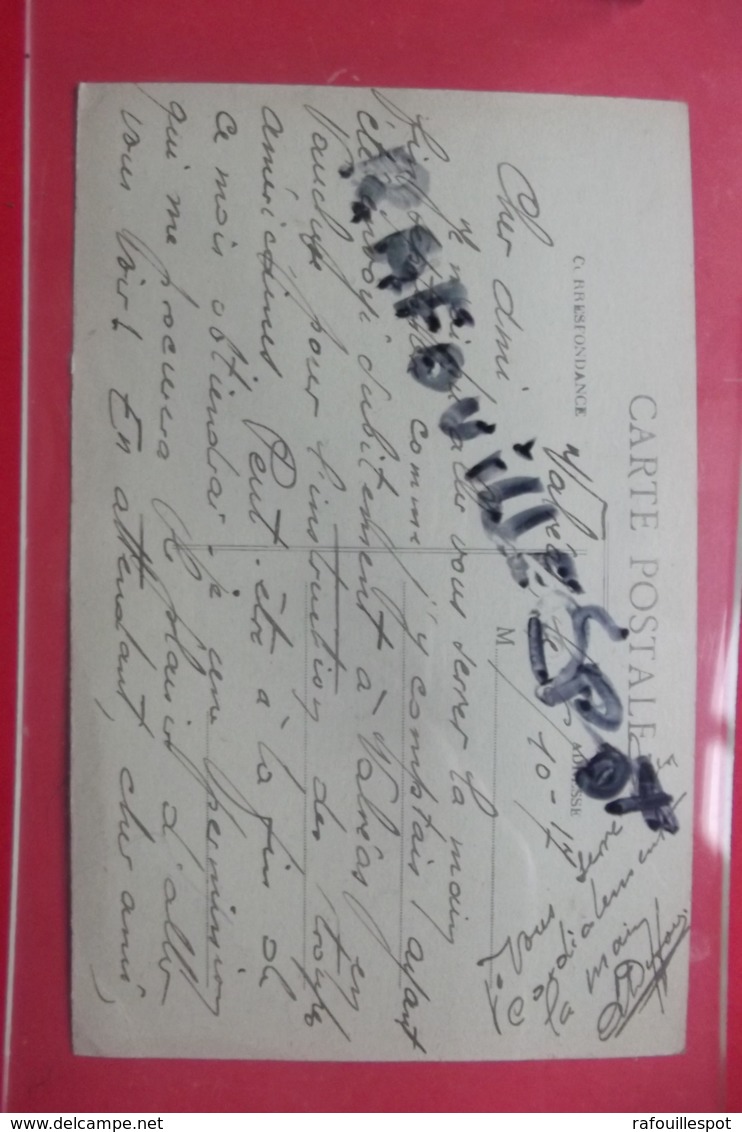 CARTE POSTALE
CORRESPONDANCE
ADRESSE
M
RAFouillESPOT
10-17
Cher ami
Je n'ai vous serrer la main
comme j'y comptais, ayant
été envoyé subitement à Valréas en
Vaucluse pour l'instruction des troupes
américaines. Peut-être à la fin de
ce mois obtiendrai-je une permission
qui me procurera le plaisir d'aller
vous voir. En attendant, cher ami,
je vous serre
cordialement
la main
www.delcampe.net
rafouillespot